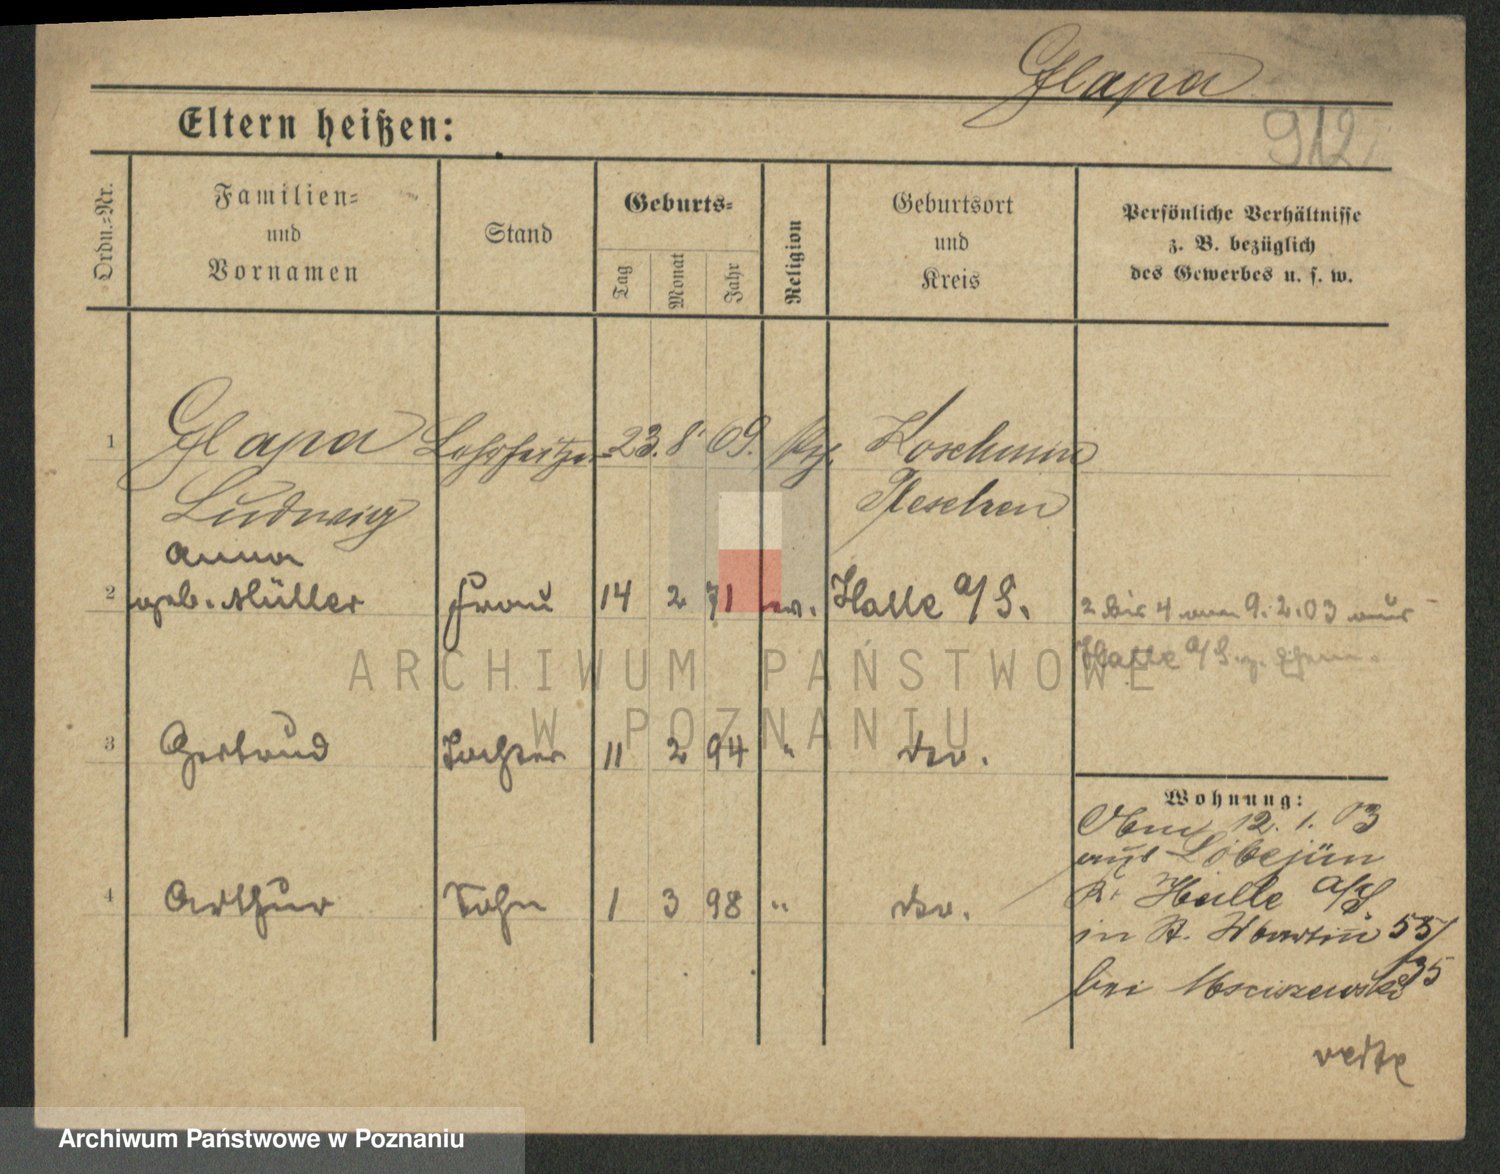 Glapa
912
Eltern heißen:
Ordn.-Nr.
Familien-
und
Vornamen
Stand
Geburts-
Tag
Monat
Jahr
Religion
Geburtsort
und
Kreis
Persönliche Verhältnisse
z. B. bezüglich
des Gewerbes u. s. w.
1 Glapa 23. 8. 69. Koschmin
Ludwig Pleschen
Anna
2 geb. Müller Frau 14 2 71 ev. Halle a/S. 2 bis 4 am 9.2.03 aus
Halle a/S. z.
3 Gertrud Tochter 11 2 94 " do.
4 Arthur Sohn 1 3 98 " do.
Wohnung:
12. 1. 03
aus Löbejün
K. Halle a/S
in St. Martin 55/
35
bei Msciszewski
verte
ARCHIWUM PAŃSTWOWE
W POZNANIU
Archiwum Państwowe w Poznaniu